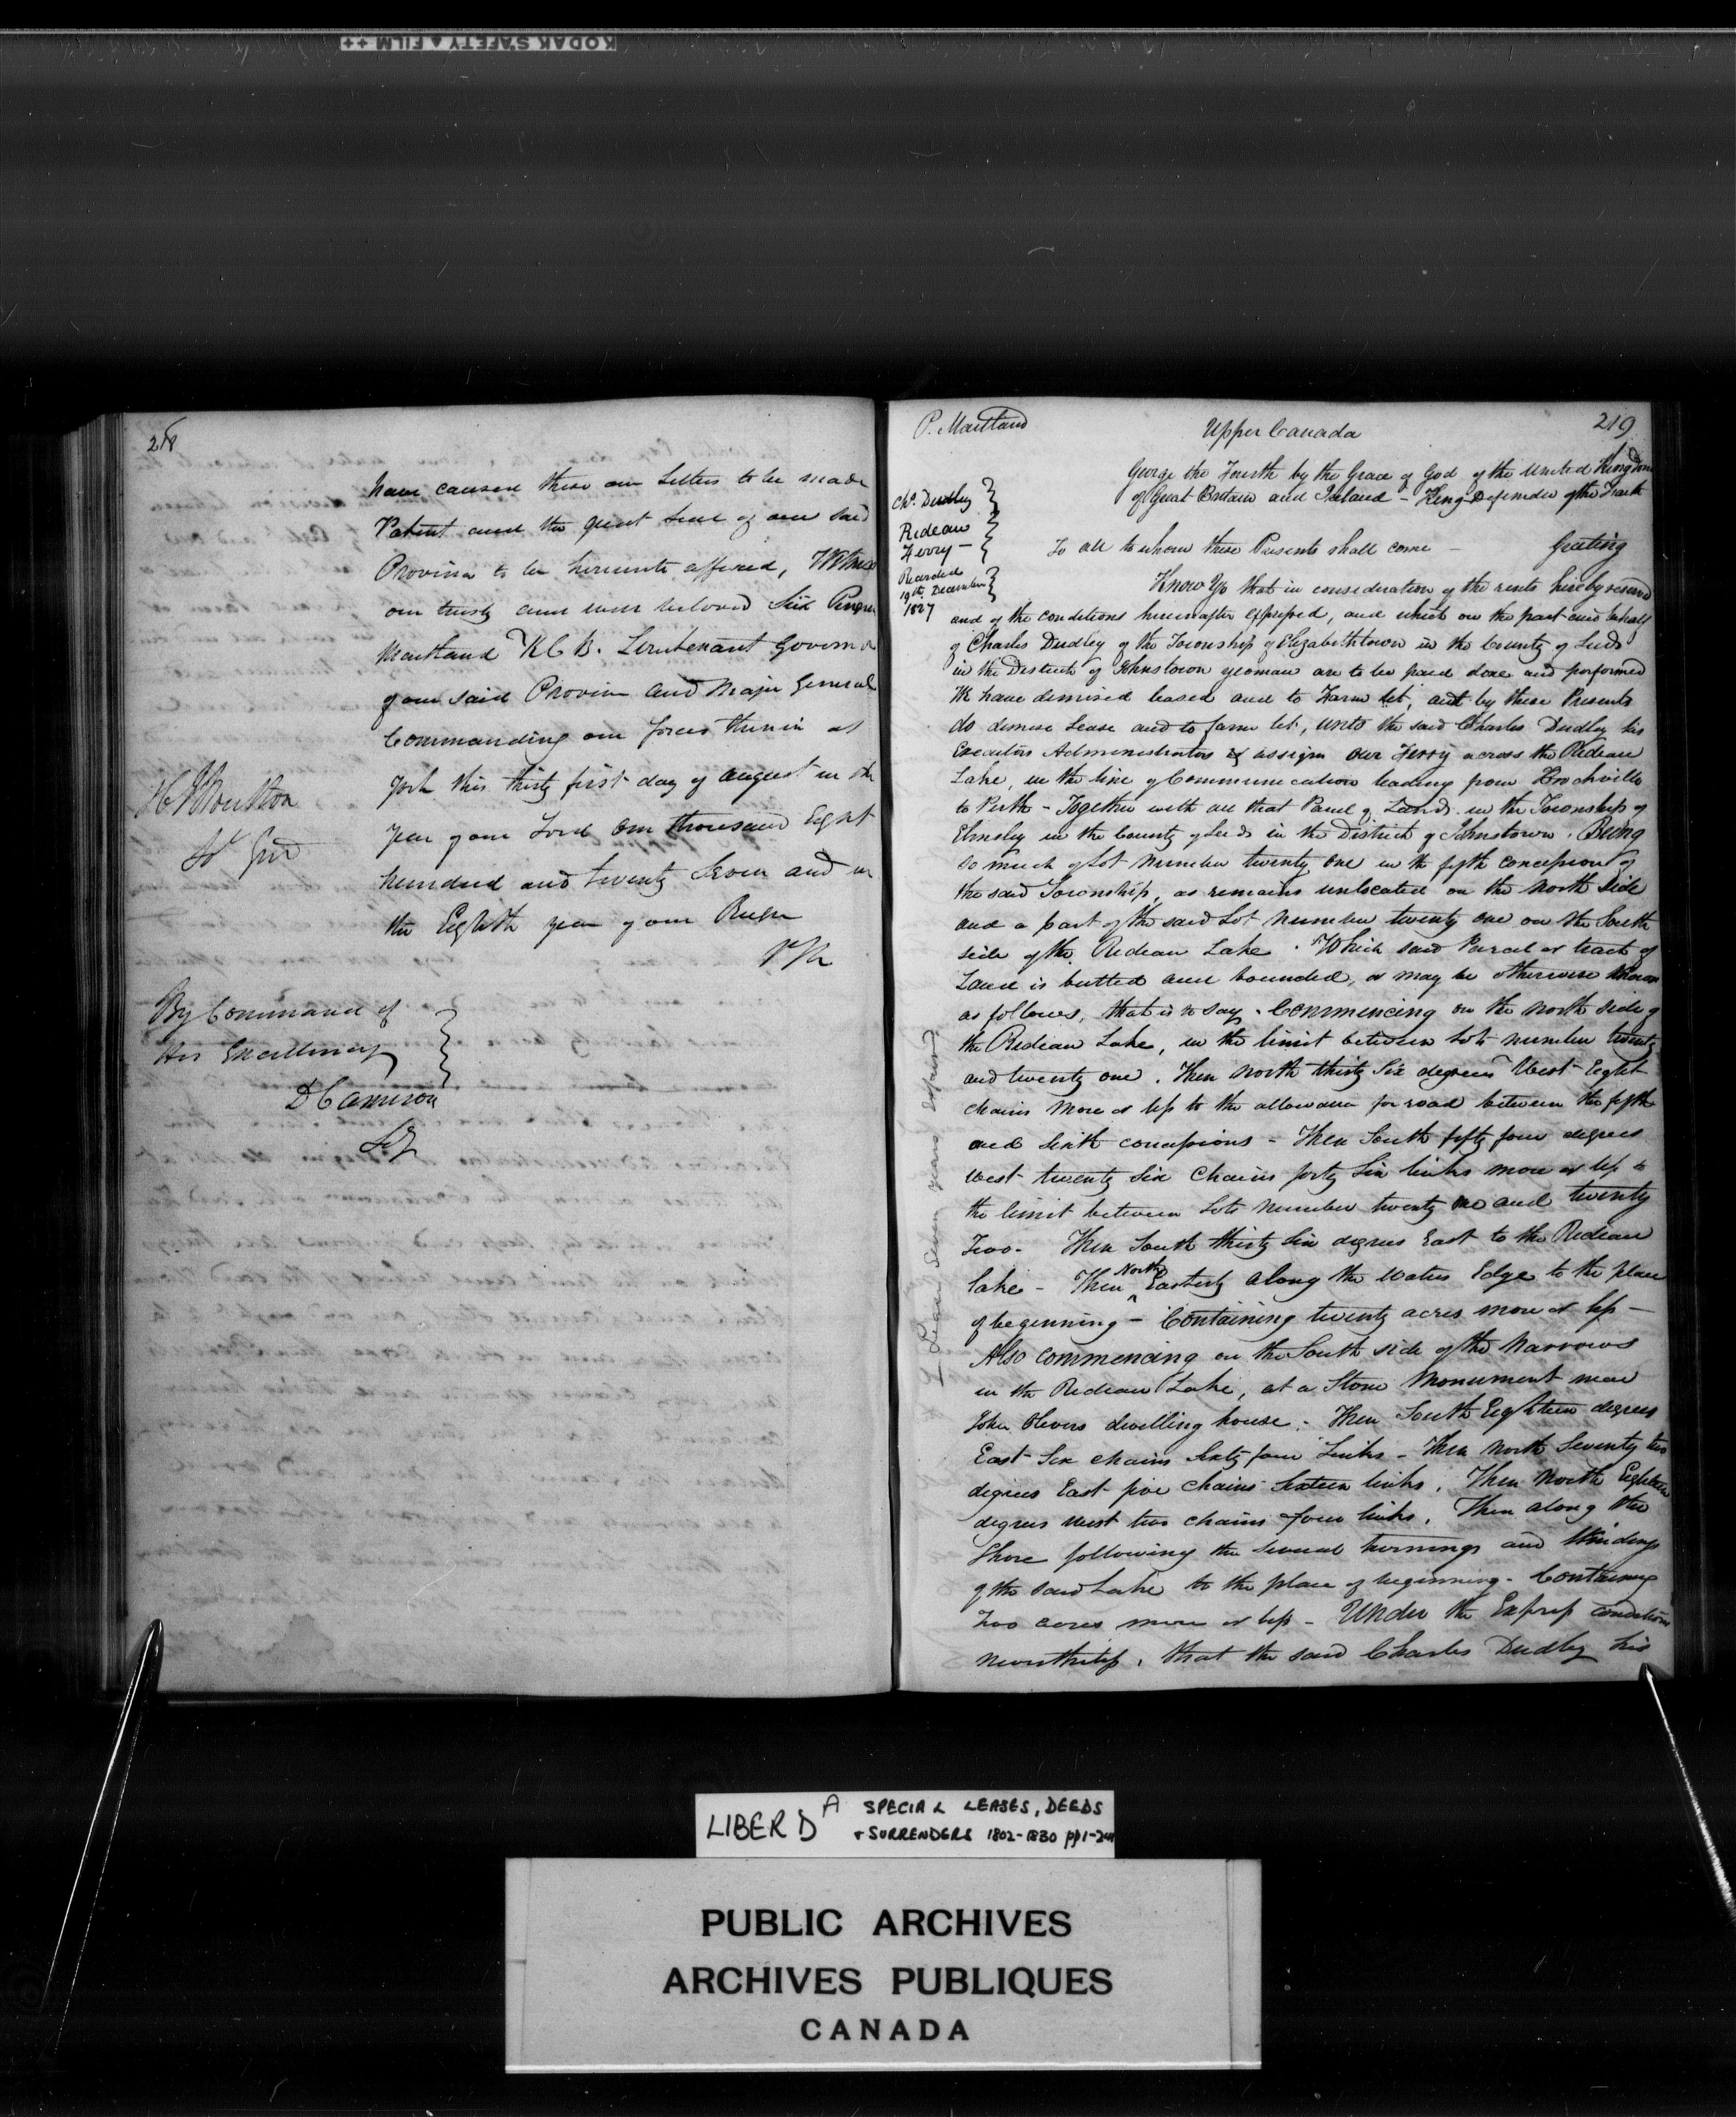 KODAK SAFETY FILM ++
218
have caused these our Letters to be made
Patent and the great Seal of our said
Province to be hereunto affixed, Witness
our trusty and well beloved Sir Peregrine
Maitland K.C.B. Lieutenant Governor
of our said Province and Major General
Commanding our forces therein at
York this thirty first day of August in the
year of our Lord One thousand Eight
hundred and twenty Seven and in
the Eighth year of our Reign
P.M
H J Boulton
Sol Genl
By Command of
His Excellency
D Cameron
Secy
P. Maitland
Upper Canada
219
Chs. Dudley
Rideau
Ferry —
Recorded
19th December
1827
George the Fourth by the Grace of God of the United Kingdom
of Great Britain and Ireland - King Defender of the Faith
To all to whom these Presents shall come — Greeting
Know Ye that in consideration of the rents hereby reserved
and of the conditions hereinafter expressed, and which on the part and behalf
of Charles Dudley of the Township of Elizabethtown in the County of Leeds
in the District of Johnstown yeoman are to be paid done and performed
We have demised leased and to Farm let, and by these Presents
do demise Lease and to farm let, unto the said Charles Dudley his
Executors Administrators & assigns Our Ferry across the Rideau
Lake, in the line of Communication leading from Brockville
to Perth - Together with all that Parcel of Land in the Township of
Elmsley in the County of Leeds in the District of Johnstown. Being
so much of Lot number twenty one in the fifth concession of
the said Township, as remains unlocated on the North Side
and a part of the said Lot number twenty one on the South
side of the Rideau Lake. Which said Parcel or tract of
Land is butted and bounded, or may be otherwise known
as follows, that is to say. Commencing on the north side of
the Rideau Lake, in the limit between Lots number twenty
and twenty one. Then North thirty Six degrees West Eight
chains more or less to the allowance for road between the fifth
and Sixth concessions - Then South fifty four degrees
West twenty Six Chains forty Six links more or less to
the limit between Lots number twenty one and twenty
Two. Then South thirty Six degrees East to the Rideau
Lake - Then North Easterly along the Waters Edge to the place
of beginning - Containing twenty acres more or less —
Also Commencing on the South side of the Narrows
in the Rideau Lake, at a Stone Monument near
John Olivers dwelling house. Then South Eighteen degrees
East Six chains Sixty four Links - Then North Seventy two
degrees East five Chains Sixteen links. Then North Eighteen
degrees West two chains four links. Then along the
Shore following the several turnings and Windings
of the said Lake to the place of beginning. Containing
Two acres more or less - Under the Express conditions
nevertheless, that the said Charles Dudley his
Lease Seven years Expired
LIBER D A SPECIAL LEASES, DEEDS
+ SURRENDERS 1802-1830
PUBLIC ARCHIVES
ARCHIVES PUBLIQUES
CANADA